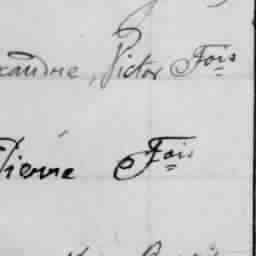 xandre, Victor Fois
Pierre Fois